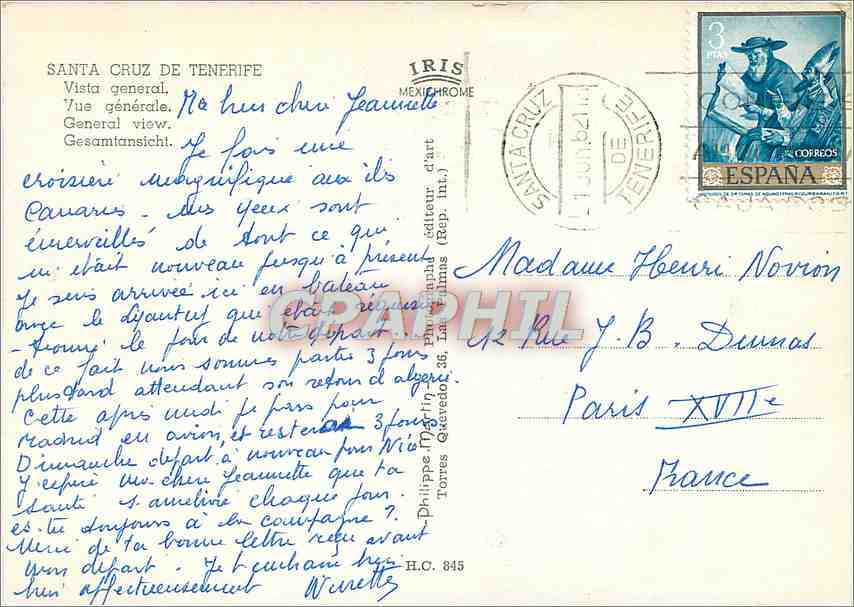 SANTA CRUZ DE TENERIFE
Vista general.
Vue générale.
General view.
Gesamtansicht.
IRIS
MEXICHROME
Ma bien chère Jeannette
Je fais une
croisière magnifique aux iles
Canaries - mes yeux sont
émerveillés de tout ce que
m'était nouveau jusqu'à présent
Je suis arrivée ici en bateau
avec le que était réquisi
-tionné le jour de notre départ.
de ce fait nous sommes partis 3 jours
plus tard attendant son retour d'algérie.
Cette après midi je pars pour
Madrid en avion, et resterai 3 jours
Dimanche départ à nouveau pour Nice
J'espère ma chère Jeannette que ta
santé s'améliore chaque jour.
es-tu toujours à la campagne ?
Merci de ta bonne lettre reçu avant
mon départ. Je t'embrasse bien
bien affectueusement Ninette
Philippe Martin - Photographe éditeur d'art
Torres Quevedo, 36, Las Palmas (Rep. int.)
H.C. 845
CPAPHIL
SANTA CRUZ DE TENERIFE
1 JUN. 62
3
PTAS
CORREOS
ESPAÑA
Madame Henri Novion
12 Rue J. B. Dumas
Paris XVIIe
France